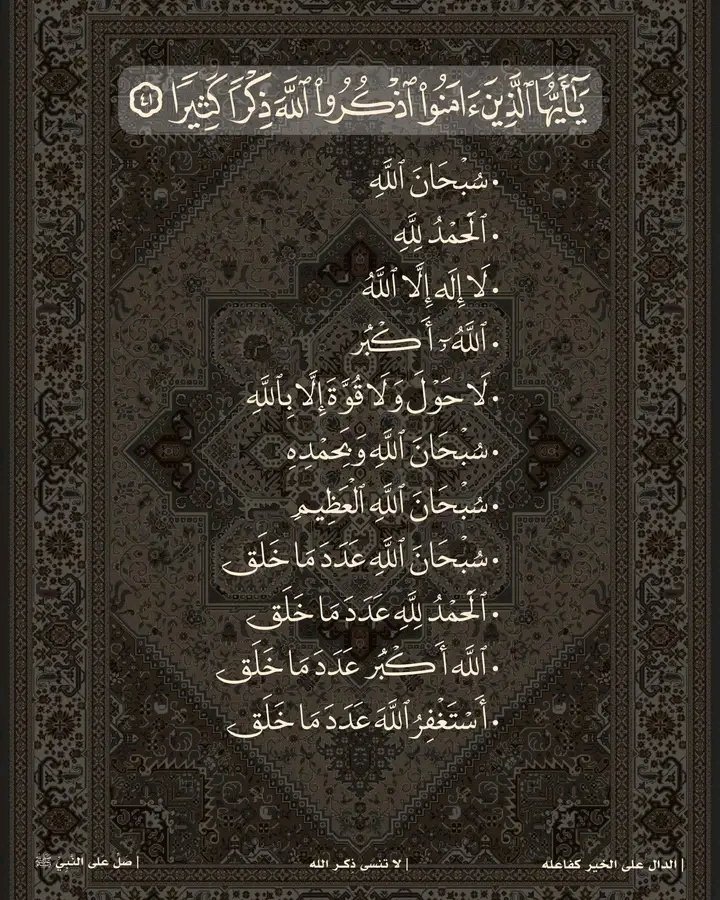 يَٰٓأَيُّهَا ٱلَّذِينَ ءَامَنُوا۟ ٱذْكُرُوا۟ ٱللَّهَ ذِكْرًا كَثِيرًا ٤١
• سُبْحَانَ ٱللَّهِ
• ٱلْحَمْدُ لِلَّهِ
• لَا إِلَه إِلَّا ٱللَّهُ
• ٱللَّهُ أَكْبُر
• لَا حَوْلَ وَلَا قُوَّةَ إِلَّا بِٱللَّهِ
• سُبْحَانَ ٱللَّهِ وَبِحمْدِهِ
• سُبْحَانَ ٱللَّهِ ٱلْعَظِيمِ
• سُبْحَانَ ٱللَّهِ عَدَدَ مَا خَلَق
• ٱلْحَمْدُ لِلَّهِ عَدَدَ مَا خَلَق
• ٱللَّه أَكْبُر عَدَدَ مَا خَلَق
• أَسْتَغْفِرُ ٱللَّهَ عَدَدَ مَا خَلَق
| الدال على الخير كفاعله | لا تنسى ذكر الله | صلّ على النّبيّ ﷺ